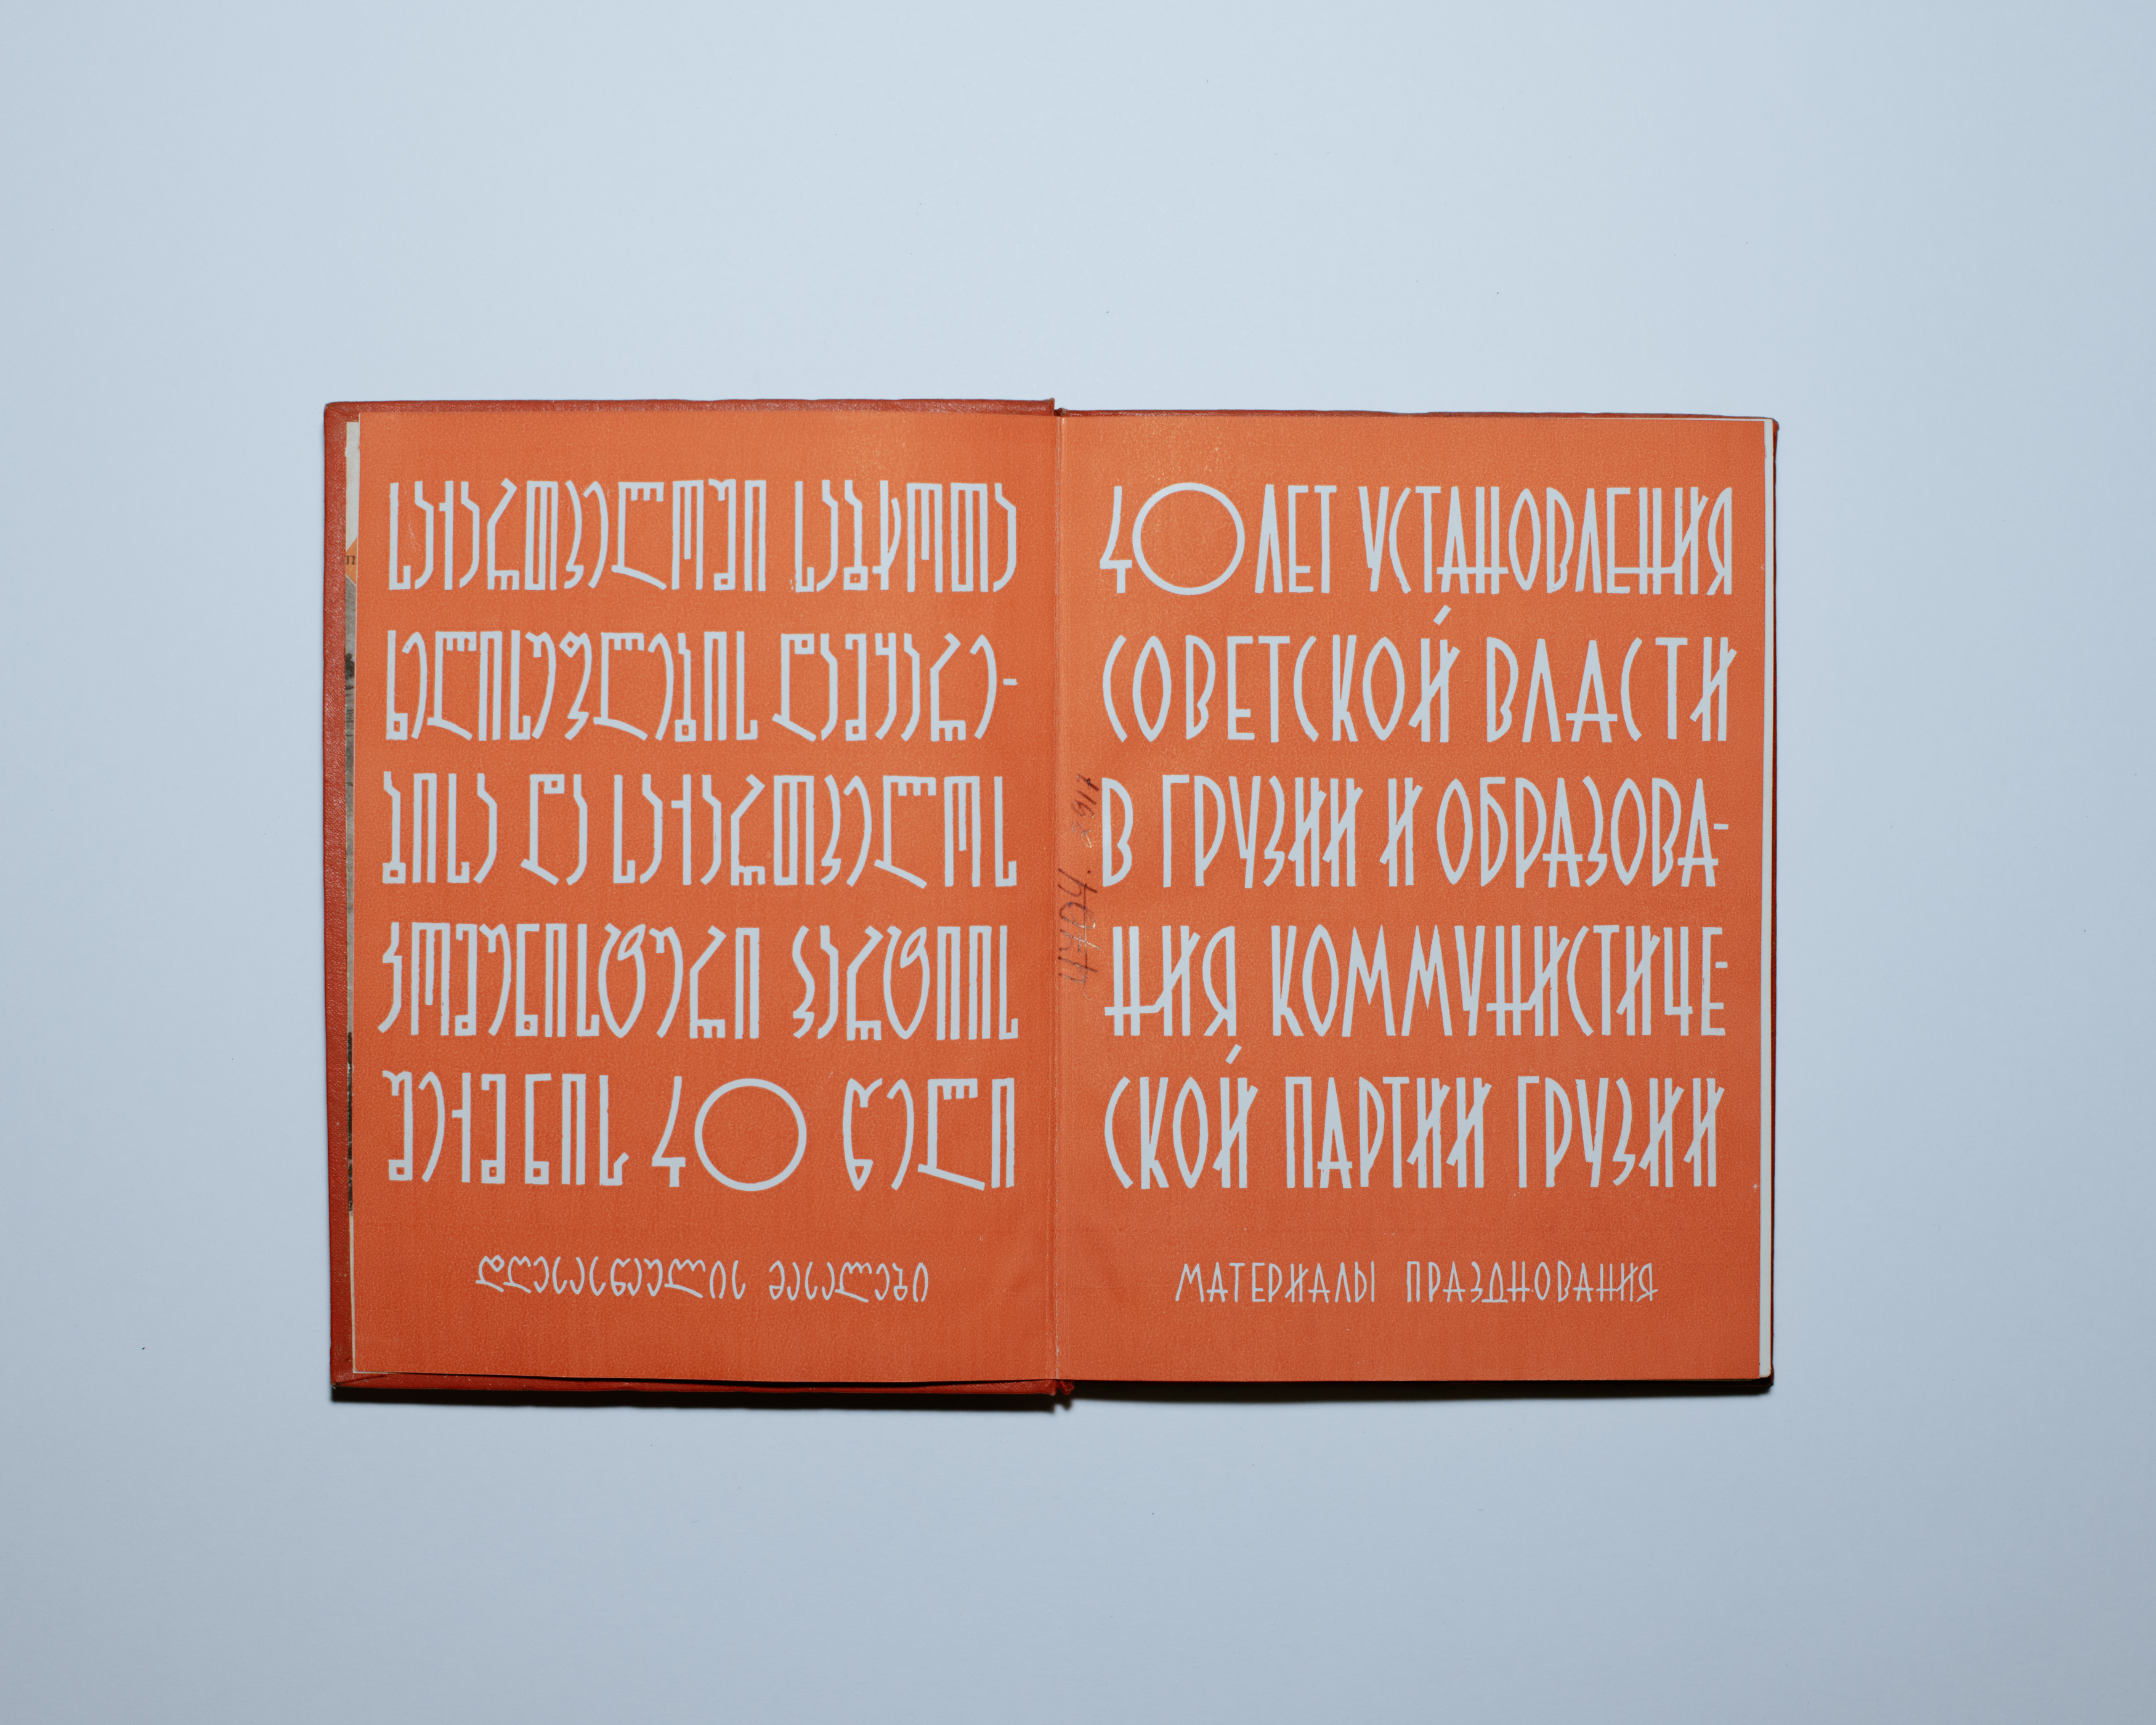 საქართველოში საბჭოთა
ხელისუფლების დამყარე-
ბისა და საქართველოს
კომუნისტური პარტიის
შექმნის 40 წელი
დღესასწაულის მასალები
40 ЛЕТ УСТАНОВЛЕНИЯ
СОВЕТСКОЙ ВЛАСТИ
В ГРУЗИИ И ОБРАЗОВА-
НИЯ КОММУНИСТИЧЕ-
СКОЙ ПАРТИИ ГРУЗИИ
МАТЕРИАЛЫ ПРАЗДНОВАНИЯ